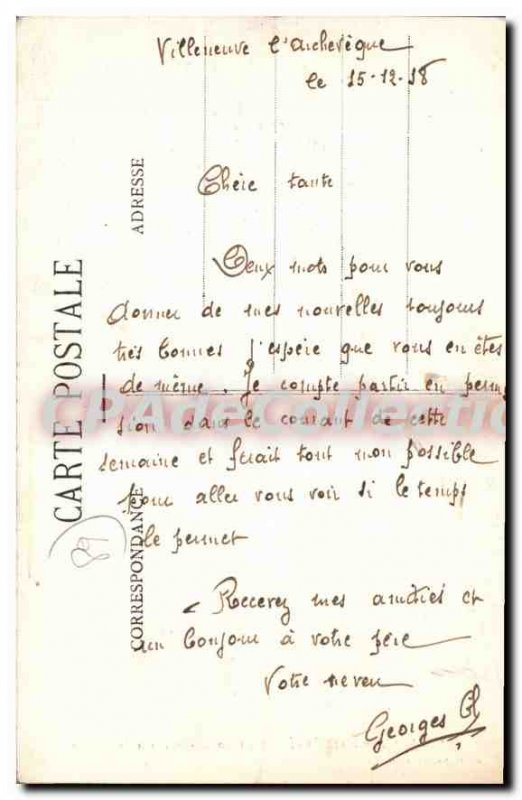 Villeneuve l'archevêque
le 15-12-18
Chère tante
Deux mots pour vous
donner de mes nouvelles toujours
très bonnes j'espère que vous en êtes
de même. Je compte partir en permi
sion dans le courant de cette
semaine et ferait tout mon possible
pour aller vous voir si le temps
le permet
Recevez mes amitiés et
un bonjour à votre père
Votre neveu
Georges
CARTE POSTALE
ADRESSE
CORRESPONDANCE
89
CPAdeCollection